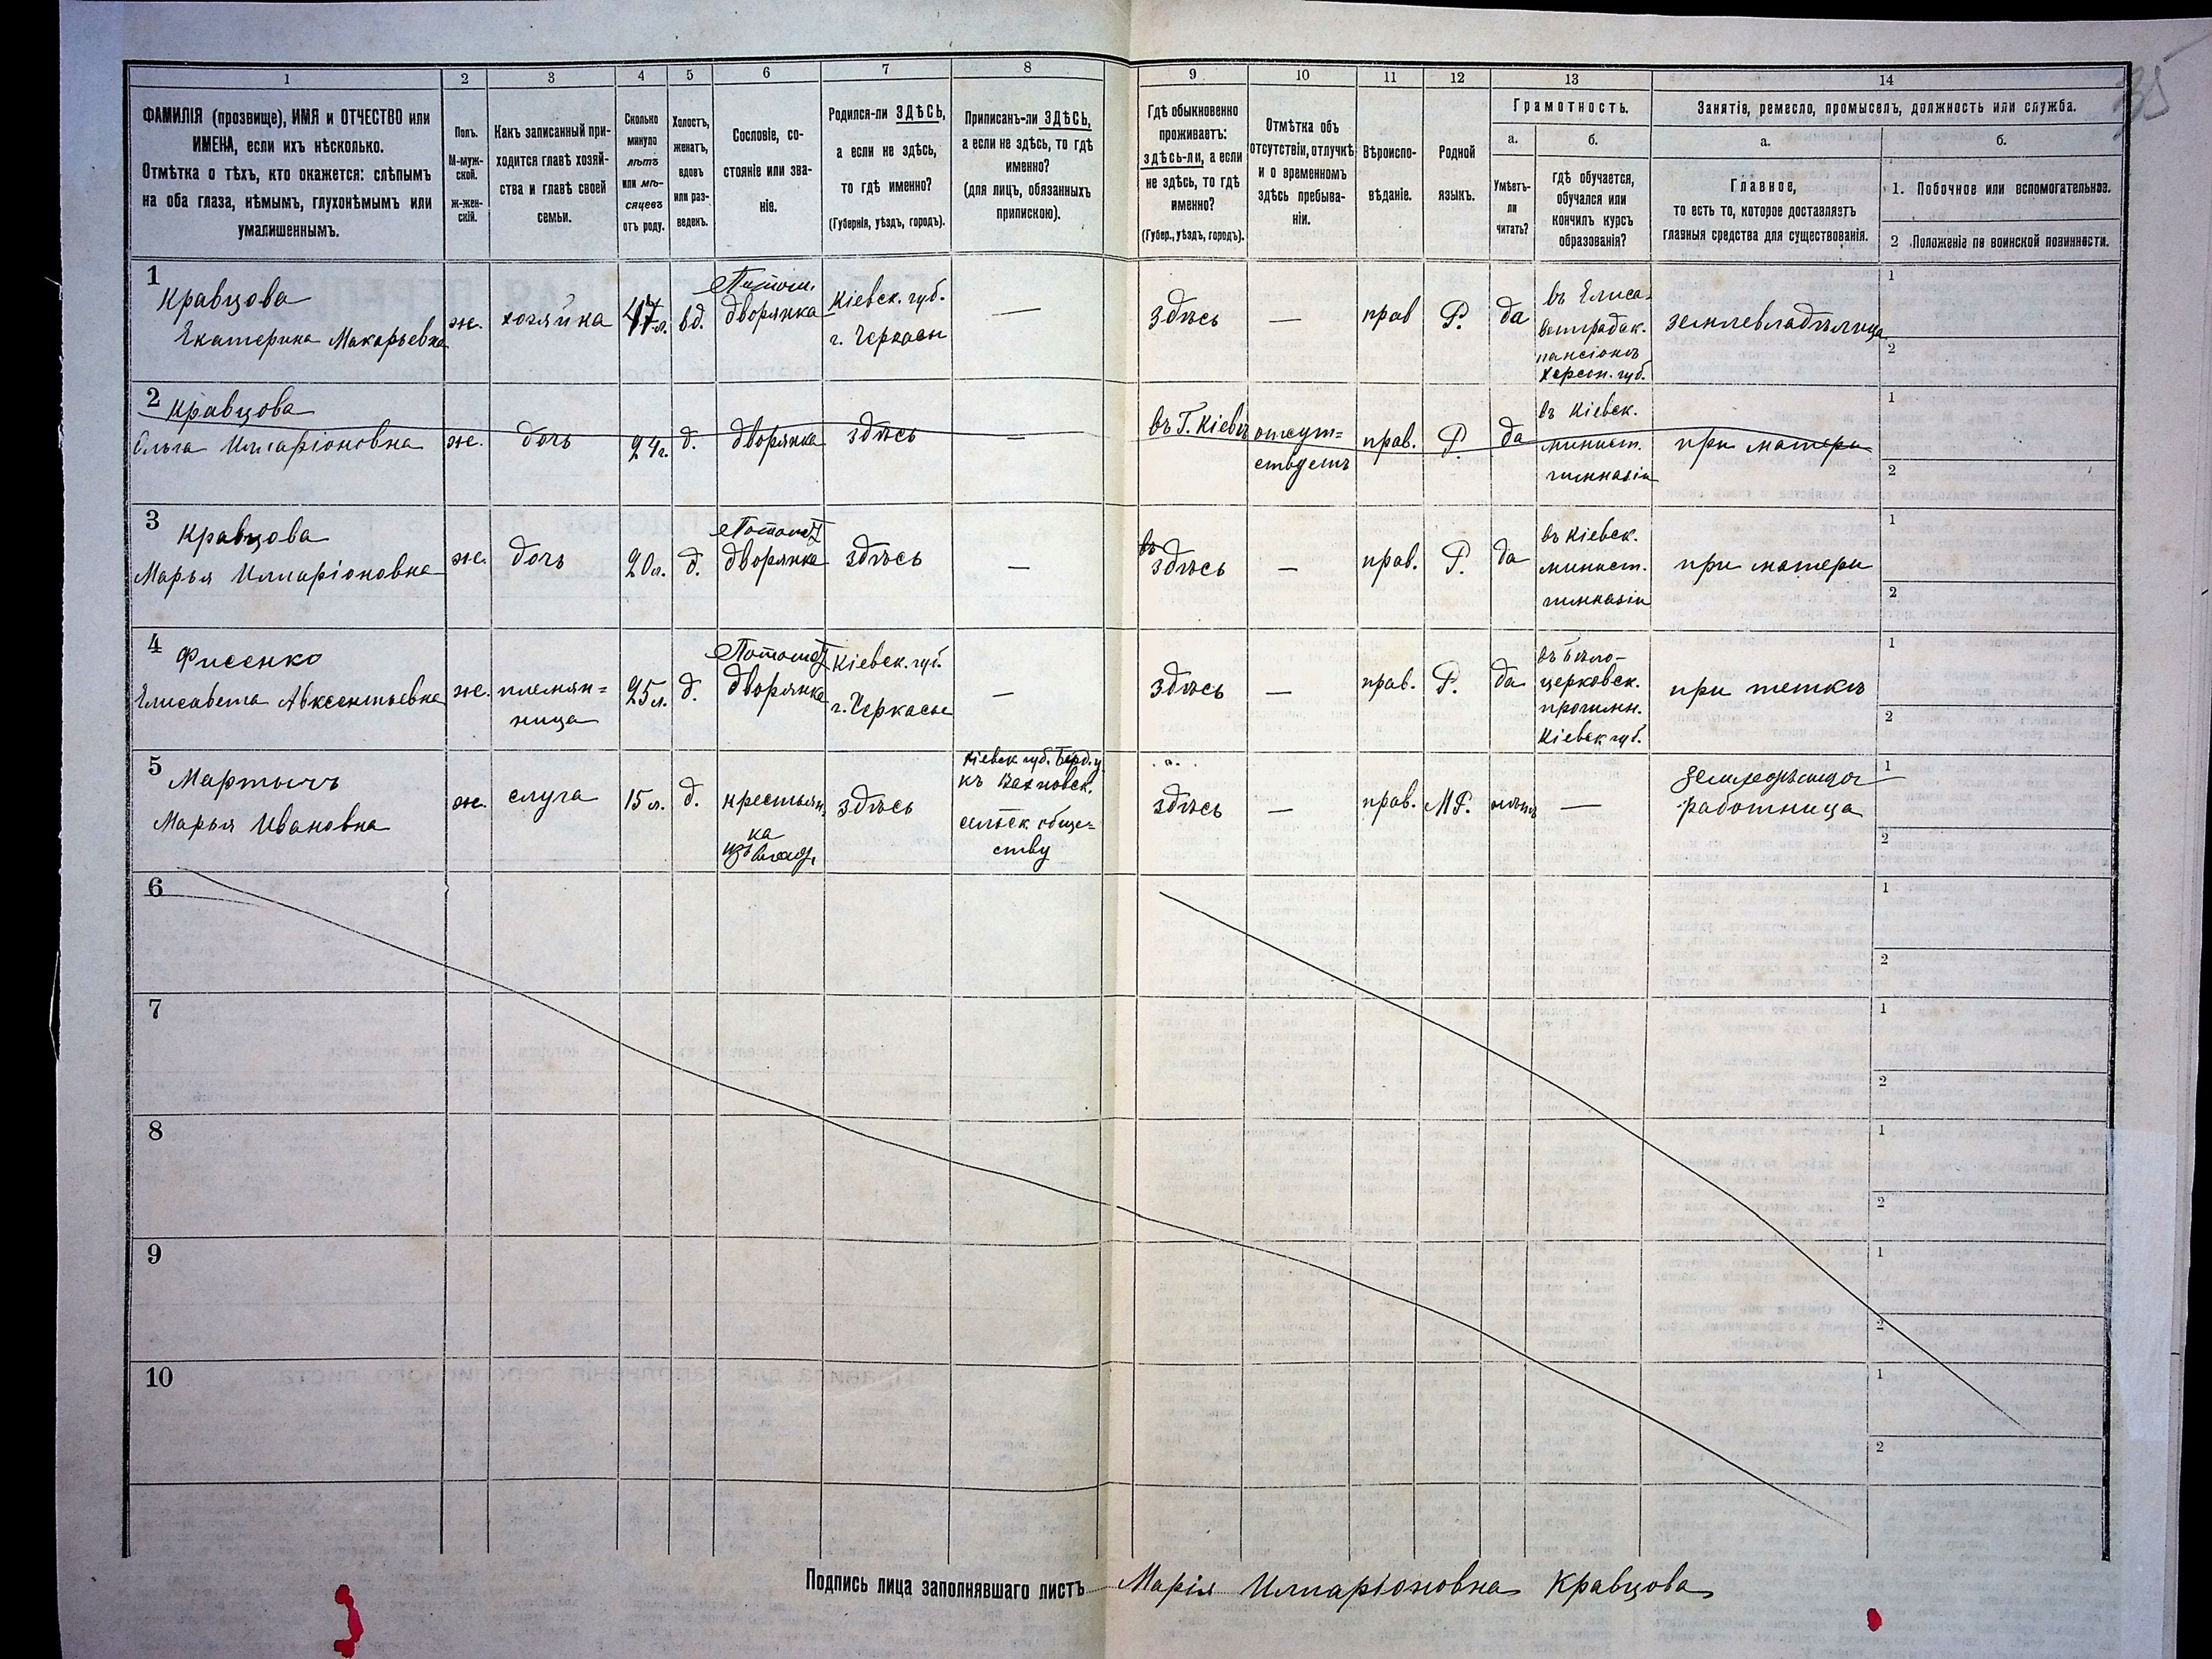 35
1
2
3
4
5
6
7
8
9
10
11
12
13
14
ФАМИЛІЯ (прозвище), ИМЯ и ОТЧЕСТВО или
ИМЕНА, если ихъ нѣсколько.
Отмѣтка о тѣхъ, кто окажется: слѣпымъ
на оба глаза, нѣмымъ, глухонѣмымъ или
умалишеннымъ.
Полъ.
М-муж-
ской.
ж-жен-
скій.
Какъ записанный при-
ходится главѣ хозяй-
ства и главѣ своей
семьи.
Сколько
минуло
лѣтъ
или мѣ-
сяцевъ
отъ роду.
Холостъ,
женатъ,
вдовъ
или раз-
веденъ.
Сословіе, со-
стояніе или зва-
ніе.
Родился-ли ЗДѢСЬ,
а если не здѣсь,
то гдѣ именно?
(Губернія, уѣздъ, городъ).
Приписанъ-ли ЗДѢСЬ,
а если не здѣсь, то гдѣ
именно?
(для лицъ, обязанныхъ
припискою).
Гдѣ обыкновенно
проживаетъ:
здѣсь-ли, а если
не здѣсь, то гдѣ
именно?
(Губер., уѣздъ, городъ).
Отмѣтка объ
отсутствіи, отлучкѣ
и о временномъ
здѣсь пребыва-
ніи.
Вѣроиспо-
вѣданіе.
Родной
языкъ.
Грамотность.
а.
Умѣетъ-
ли
читать?
б.
гдѣ обучается,
обучался или
кончилъ курсъ
образованія?
Занятія, ремесло, промыселъ, должность или служба.
а.
Главное,
то есть то, которое доставляетъ
главныя средства для существованія.
б.
1. Побочное или вспомогательное.
2 Положеніе по воинской повинности.
1
Кравцова
Екатерина Макарьевна
ж.
хозяйка
47 л.
вд.
Потом.
дворянка
Кіевск. губ.
г. Черкасы
—
здѣсь
—
прав
Р.
да
въ Елиса-
ветградск.
пансіонѣ
Херсон. губ.
землевладѣлица
1
2
2
Кравцова
Ольга Илларіоновна
ж.
дочь
24 г.
д.
дворянка
здѣсь
—
въ Г. Кіевѣ
отсут=
ствуетъ
прав.
Р.
да
въ Кіевск.
минист.
гимназіи
при матери
1
2
3
Кравцова
Марья Илларіоновна
ж.
дочь
20 л.
д.
Потом
дворянка
здѣсь
—
въ
здѣсь
—
прав.
Р.
да
въ Кіевск.
минист.
гимназіи
при матери
1
2
4
Фисенко
Елисавета Авксентьевна
ж.
племян=
ница
25 л.
д.
Потом
дворянка
Кіевск. губ.
г. Черкасы
—
здѣсь
—
прав.
Р.
да
въ Бѣло-
церковск.
прогимн.
Кіевск. губ.
при теткѣ
1
2
5
Мартычъ
Марья Ивановна
ж.
слуга
15 л.
д.
крестьян
ка
изъ
здѣсь
Кіевск губ. Берд. у
къ Вахновск.
сельск обще=
ству
здѣсь
—
прав.
МР.
нѣтъ
—
работница
1
2
6
1
2
7
1
2
8
1
2
9
1
2
10
1
2
Подпись лица заполнявшаго листъ Марія Илларіоновна Кравцова